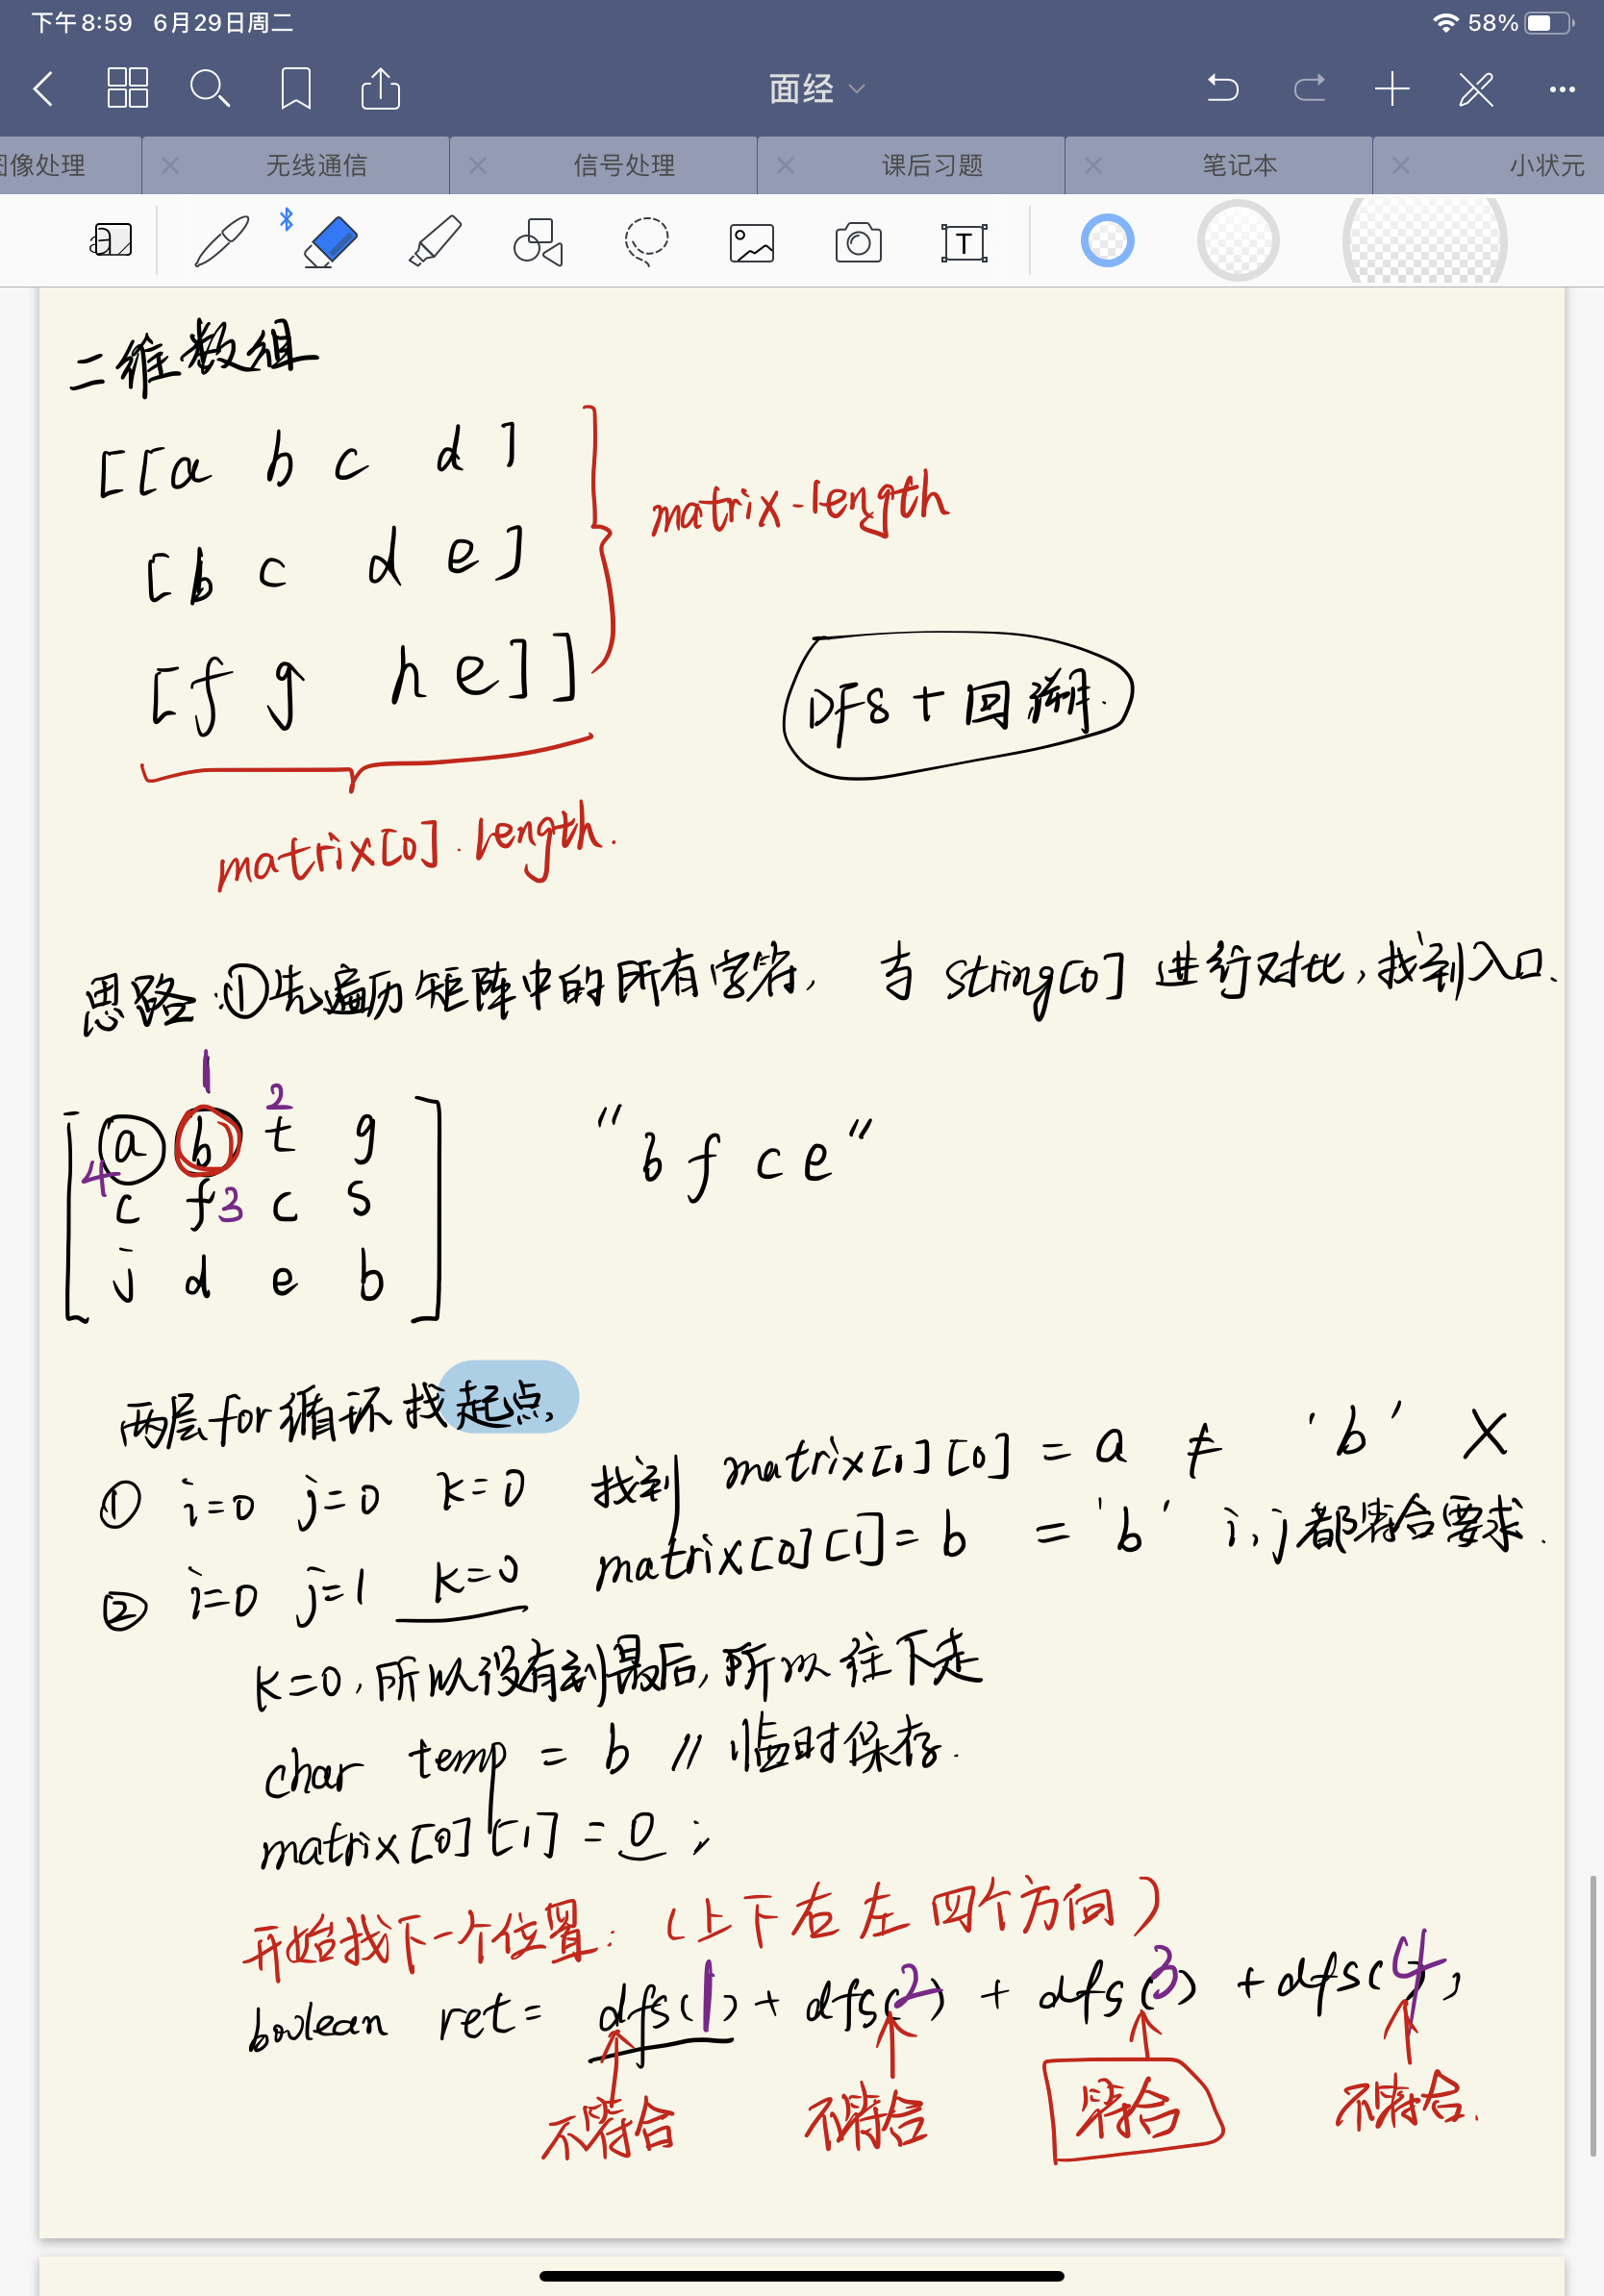 下午8:59 6月29日周二 58%
面经
图像处理 无线通信 信号处理 课后习题 笔记本 小状元
T
二维数组
[[a b c d]
[b c d e]
[f g h e]]
matrix-length
DFS + 回溯.
matrix[0].length.
思路:①先遍历矩阵中的所有字符, 与 string[0] 进行对比,找到入口.
1
2
a b t g
4
c f 3 c s
j d e b
"b f c e"
两层for循环找起点,
① i=0 j=0 k=0 找到 matrix[0][0] = a ≠ 'b' X
② i=0 j=1 k=0 matrix[0][1] = b = 'b' i,j都符合要求.
k=0,所以没有到最后,所以往下走
char temp = b // 临时保存.
matrix[0][1] = 0 ;
开始找下一个位置:(上下右左四个方向)
boolean ret= dfs(1) + dfs(2) + dfs(3) + dfs(4);
不符合 不符合 符合 不符合.